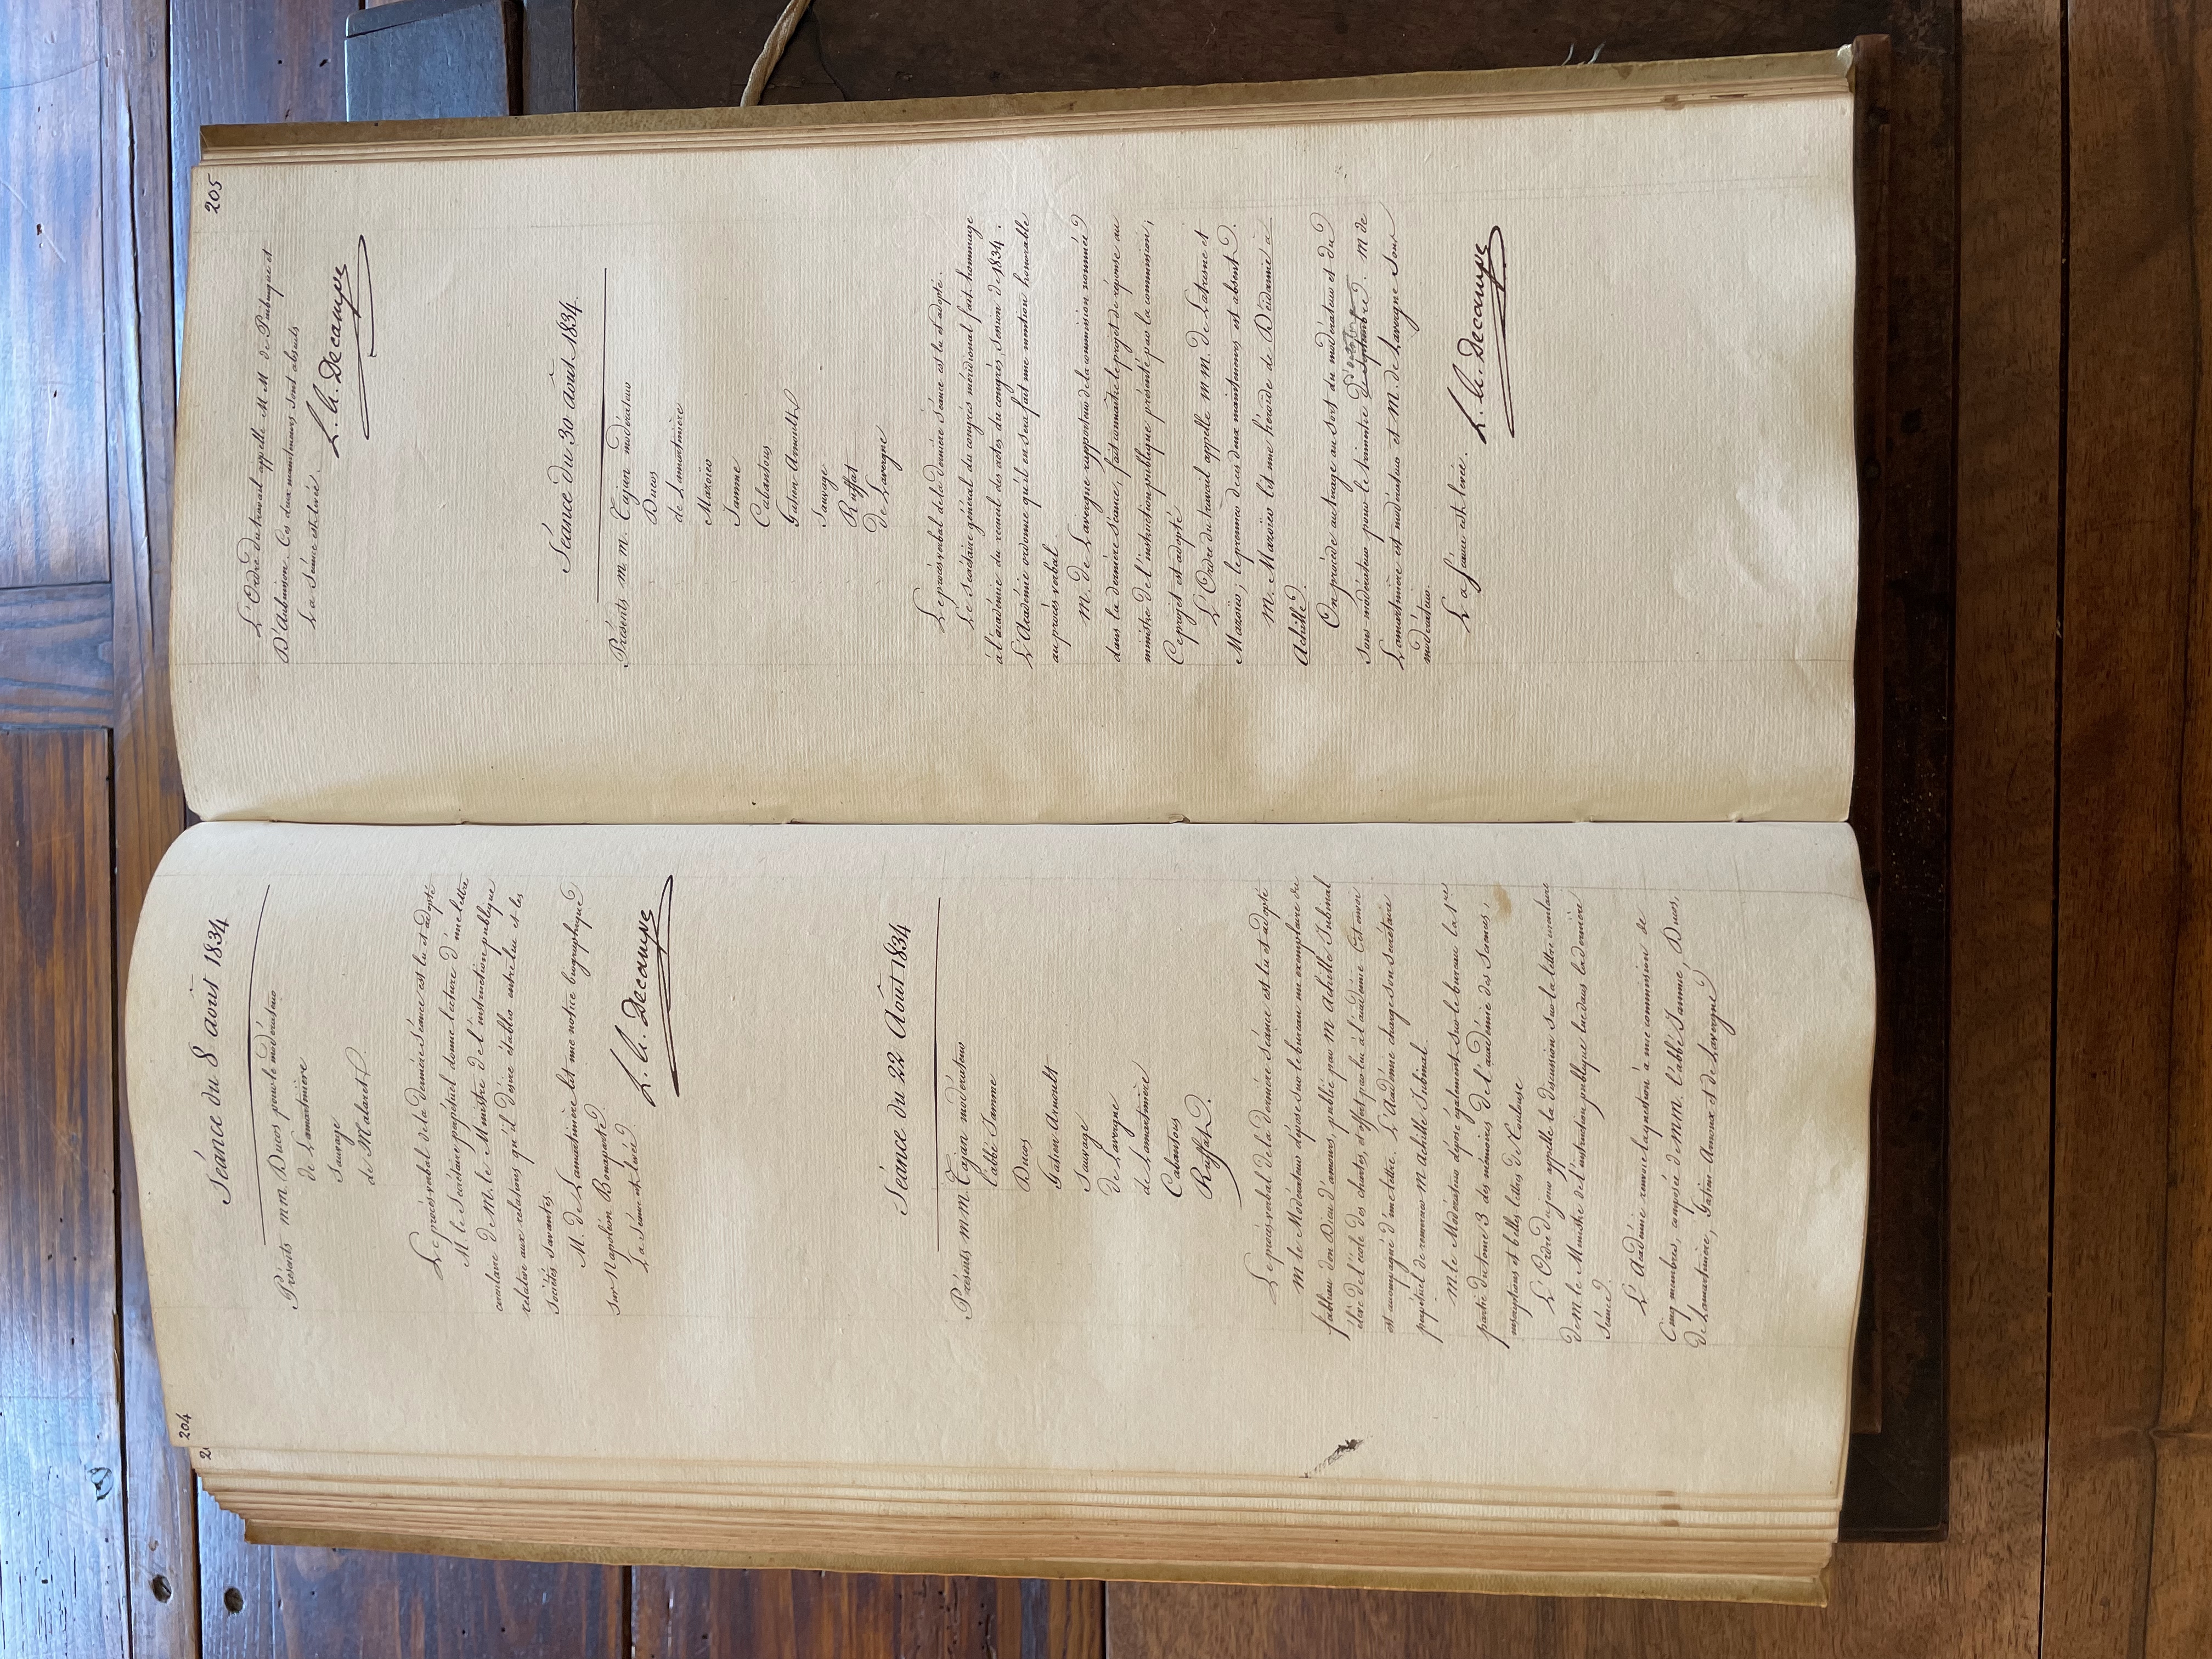 204
Séance du 8 août 1834
Présents m.m. Ducos pour le modérateur
de Lamartinière
Sauvage
de Malaret.
Le procès verbal de la dernière séance est lu et adopté
M. le Secrétaire perpétuel donne lecture d'une lettre
circulaire de M. le Ministre de l'instruction publique
relative aux relations qu'il désire établir entre lui et les
sociétés savantes.
M. de Lamartinière lit une notice biographique
sur Napoléon Bonaparte.
La séance est levée.
L. A. Decampe
Séance du 22 Août 1834
Présents m.m. Tajan modérateur
l'abbé Jamme
Ducos
Gatien-Arnoult
Sauvage
de Lavergne
de Lamartinière
Cabantous
Ruffat.
Le procès verbal de la dernière séance est lu et adopté
M. le Modérateur dépose sur le bureau un exemplaire du
fabliau don Dieu d'amours, publié par M. Achille Jubinal
élève de l'école des chartes, et offert par lui à l'académie. Cet envoi
est accompagné d'une lettre. L'Académie charge son secrétaire
perpétuel de remercier M. Achille Jubinal.
M. le Modérateur dépose également sur le bureau la 1re
partie du tome 3 des mémoires de l'académie des Sciences,
inscriptions et belles lettres de Toulouse
L'Ordre du jour appelle la discussion sur la lettre circulaire
de M. le Ministre de l'instruction publique lue dans la dernière
séance.
L'Académie renvoie la question à une commission de
Cinq membres, composée de MM. l'abbé Jamme, Ducos,
de Lamartinière, Gatien-Arnoux et de Lavergne
205
L'Ordre du travail appelle M. M. de Puibusque et
D'Aubuisson. Ces deux mainteneurs sont absents
La séance est levée.
L. A. Decampe
Séance du 30 août 1834.
Présents m.m. Tajan modérateur
Ducos
de Lamartinière
Mazoïer
Jamme
Cabantous
Gatien-Arnoult
Sauvage
Ruffat
de Lavergne
Le procès verbal de la dernière séance est lu et adopté.
Le Secrétaire général du congrès méridional fait hommage
à l'académie du recueil des actes du congrès, session de 1834.
L'Académie ordonne qu'il en sera fait une mention honorable
au procès verbal.
M. de Lavergne rapporteur de la commission nommée
dans la dernière séance, fait connaître le projet de réponse au
ministre de l'instruction publique présenté par la commission;
Ce projet est adopté
L'Ordre du travail appelle MM. de Latresne et
Mazoïer; le premier de ces deux mainteneurs est absent.
M. Mazoïer lit une héroïde de Déidamie à
Achille.
On procède au tirage au sort du modérateur et du
sous-modérateur pour le trimestre de septembre d'octobre. M de
Lamartinière est modérateur et M. de Lavergne sous
modérateur.
La séance est levée.
L. A. Decampe